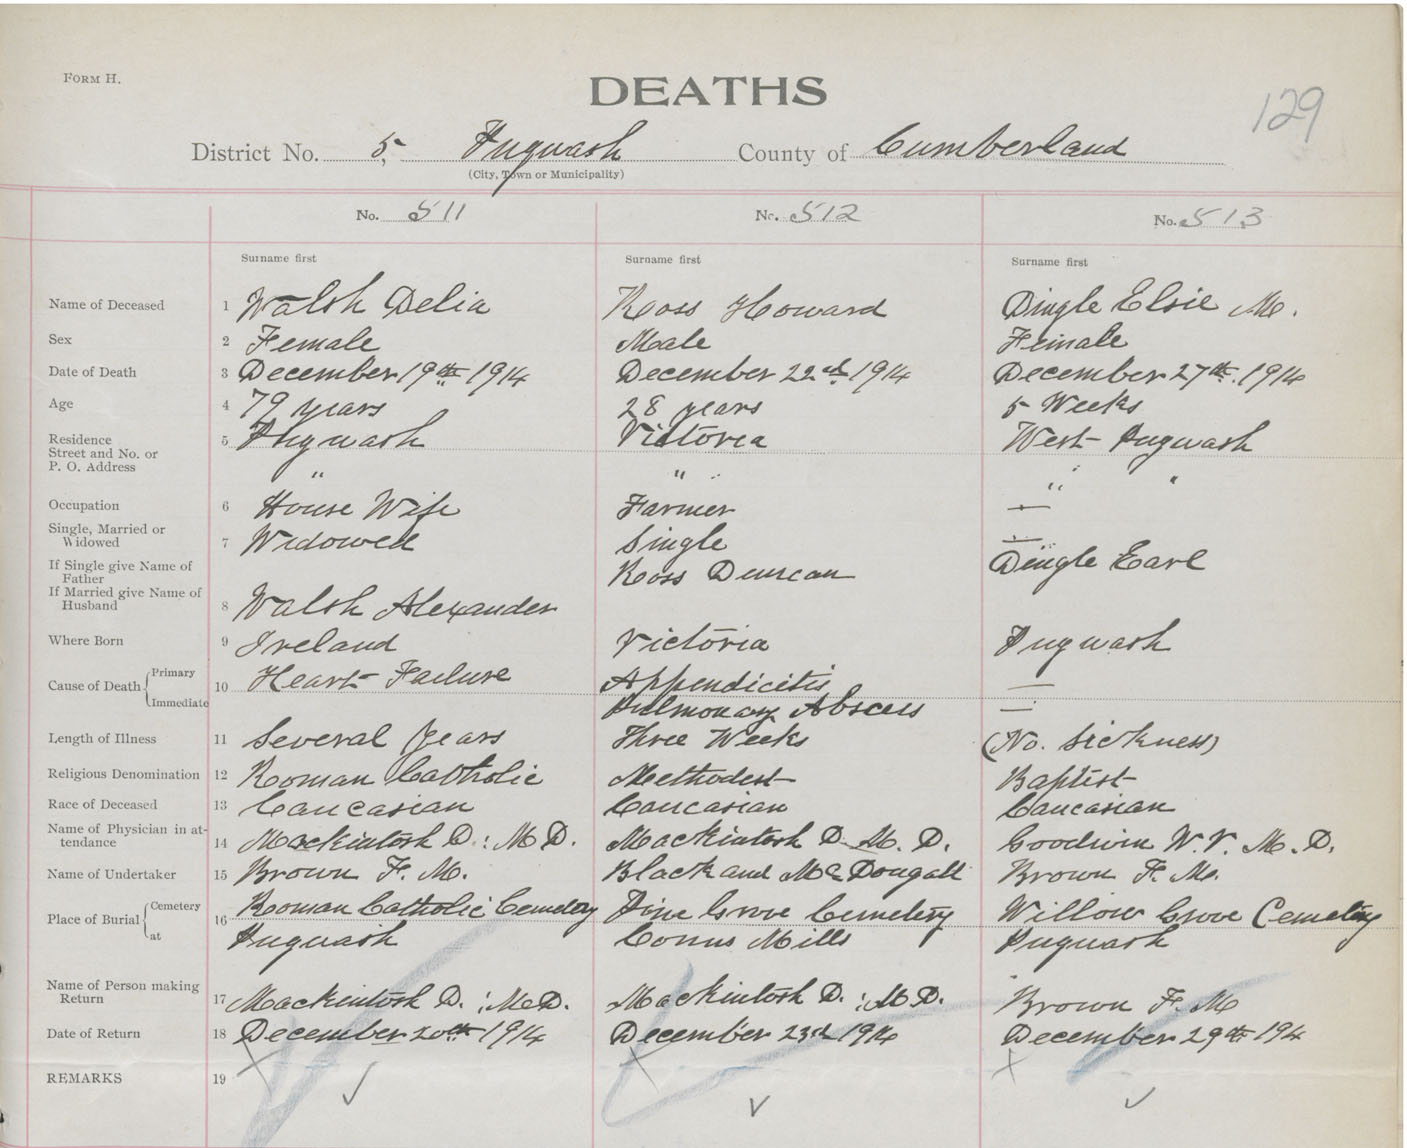 FORM H.
DEATHS
129
District No. 5, Pugwash County of Cumberland
(City, Town or Municipality)
No. 511 No. 512 No. 513
Surname first Surname first Surname first
Name of Deceased 1 Walsh Delia Ross Howard Dingle Elsie M.
Sex 2 Female Male Female
Date of Death 3 December 19th 1914 December 22nd 1914 December 27th. 1914
Age 4 79 years 28 years 5 Weeks
Residence 5 Pugwash Victoria West Pugwash
Street and No. or
P. O. Address " " " "
Occupation 6 House Wife Farmer —
Single, Married or
Widowed 7 Widowed Single —
If Single give Name of
Father Ross Duncan Dingle Earl
If Married give Name of
Husband 8 Walsh Alexander
Where Born 9 Ireland Victoria Pugwash
Cause of Death { Primary 10 Heart Failure Appendicitis —
Immediate Pulmonary Abscess —
Length of Illness 11 Several years Three Weeks (No. Sickness)
Religious Denomination 12 Roman Catholic Methodist Baptist
Race of Deceased 13 Caucasian Caucasian Caucasian
Name of Physician in at-
tendance 14 Mackintosh D.: M.D. Mackintosh D. M.D. Goodwin W.V. M.D.
Name of Undertaker 15 Brown F. M. Black and McDougall Brown F. M.
Place of Burial { Cemetery 16 Roman Catholic Cemetery Pine Grove Cemetery Willow Grove Cemetery
at Pugwash Conns Mills Pugwash
Name of Person making
Return 17 Mackintosh D. : M.D. Mackintosh D. : M.D. Brown F. M
Date of Return 18 December 20th 1914 December 23rd 1914 December 29th 1914
REMARKS 19